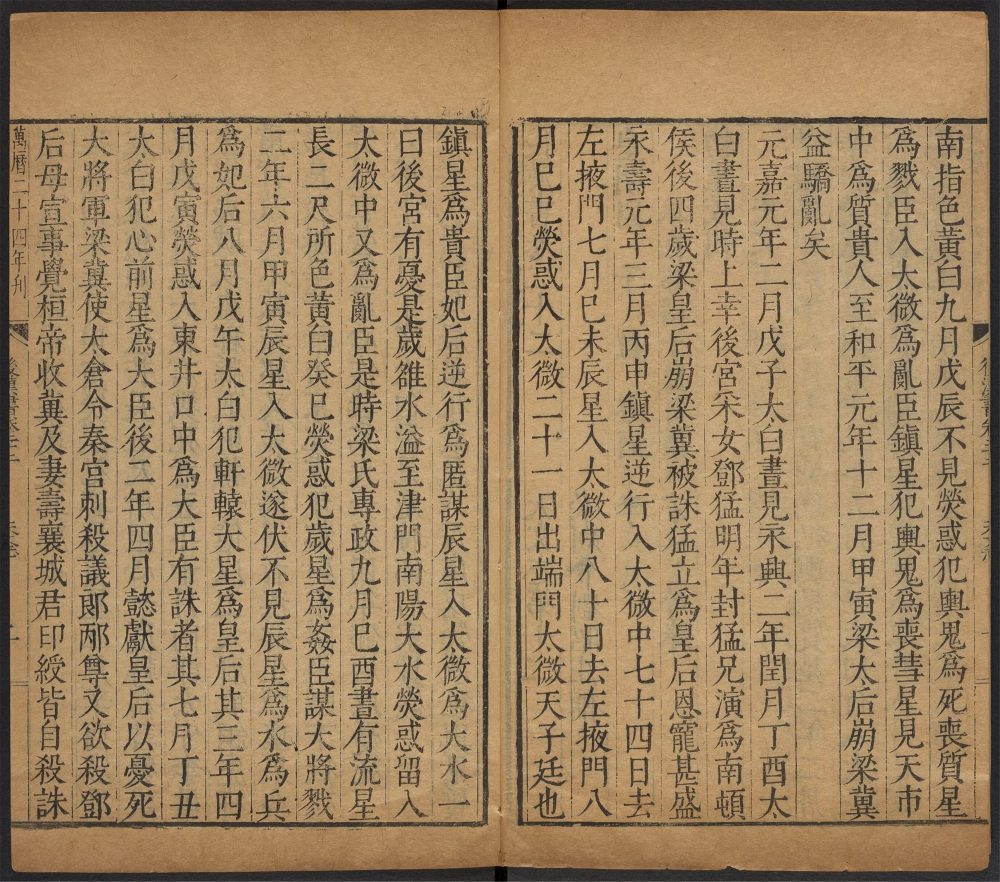 南指色黃白九月戊辰不見熒惑犯輿鬼為死喪質星
為戮臣入太微為亂臣鎮星犯輿鬼為喪彗星見天市
中為質貴人至和平元年十二月甲寅梁太后崩梁冀
益驕亂矣
元嘉元年二月戊子太白晝見永興二年閏月丁酉太
白晝見時上幸後宮采女鄧猛明年封猛兄演為南頓
侯後四歲梁皇后崩梁冀被誅猛立為皇后恩寵甚盛
永壽元年三月丙申鎮星逆行入太微中七十四日去
左掖門七月己未辰星入太微中八十日去左掖門八
月己巳熒惑入太微二十一日出端門太微天子廷也
鎮星為貴臣妃后逆行為匿謀辰星入太微為大水一
曰後宮有憂是歲雒水溢至津門南陽大水熒惑留入
太微中又為亂臣是時梁氏專政九月己酉晝有流星
長二尺所色黃白癸巳熒惑犯歲星為姦臣謀大將戮
二年六月甲寅辰星入太微遂伏不見辰星為水為兵
為妃后八月戊午太白犯軒轅大星為皇后其三年四
月戊寅熒惑入東井口中為大臣有誅者其七月丁丑
太白犯心前星為大臣後二年四月懿獻皇后以憂死
大將軍梁冀使太倉令秦宮刺殺議郎邴尊又欲殺鄧
后母宣事覺桓帝收冀及妻壽襄城君印綬皆自殺誅
萬曆二十四年刊